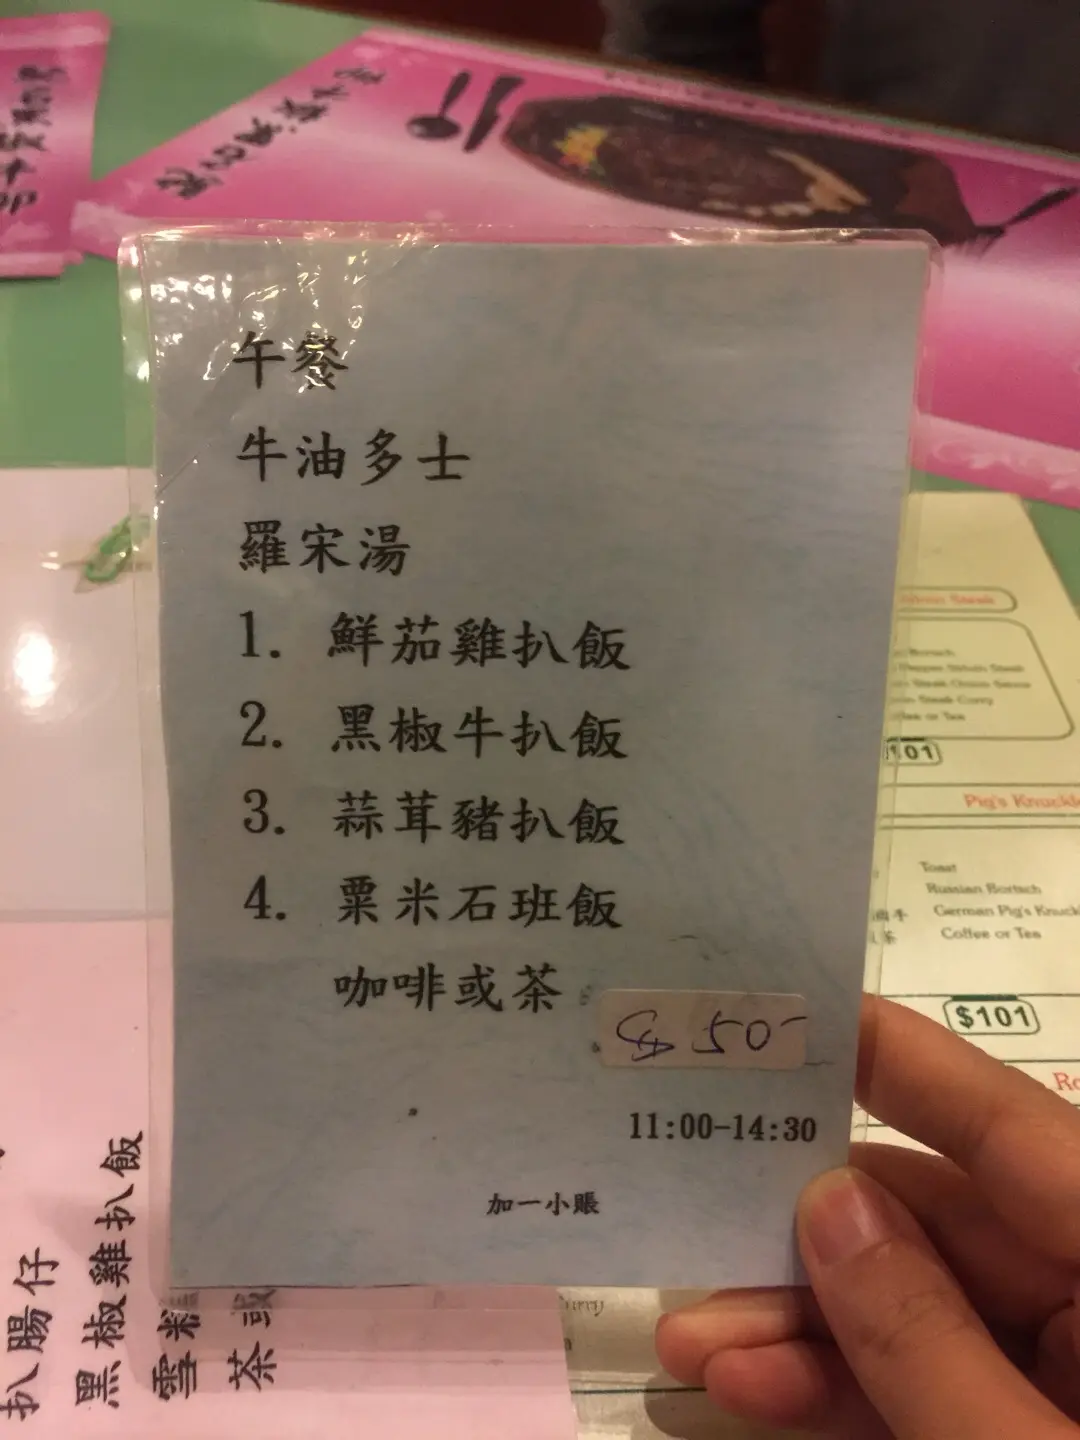 午餐
牛油多士
羅宋湯
1. 鮮茄雞扒飯
2. 黑椒牛扒飯
3. 蒜茸豬扒飯
4. 粟米石班飯
咖啡或茶
$ 50-
11:00-14:30
加一小賬
Steak
Bortsch
Steak Curry
or Tea
101
Pig's Knuckle
Toast
Russian Bortsch
German Pig's Knuck
Coffee or Tea
$101
Ro
扒腸仔
黑椒雞扒飯
雪糕
茶或